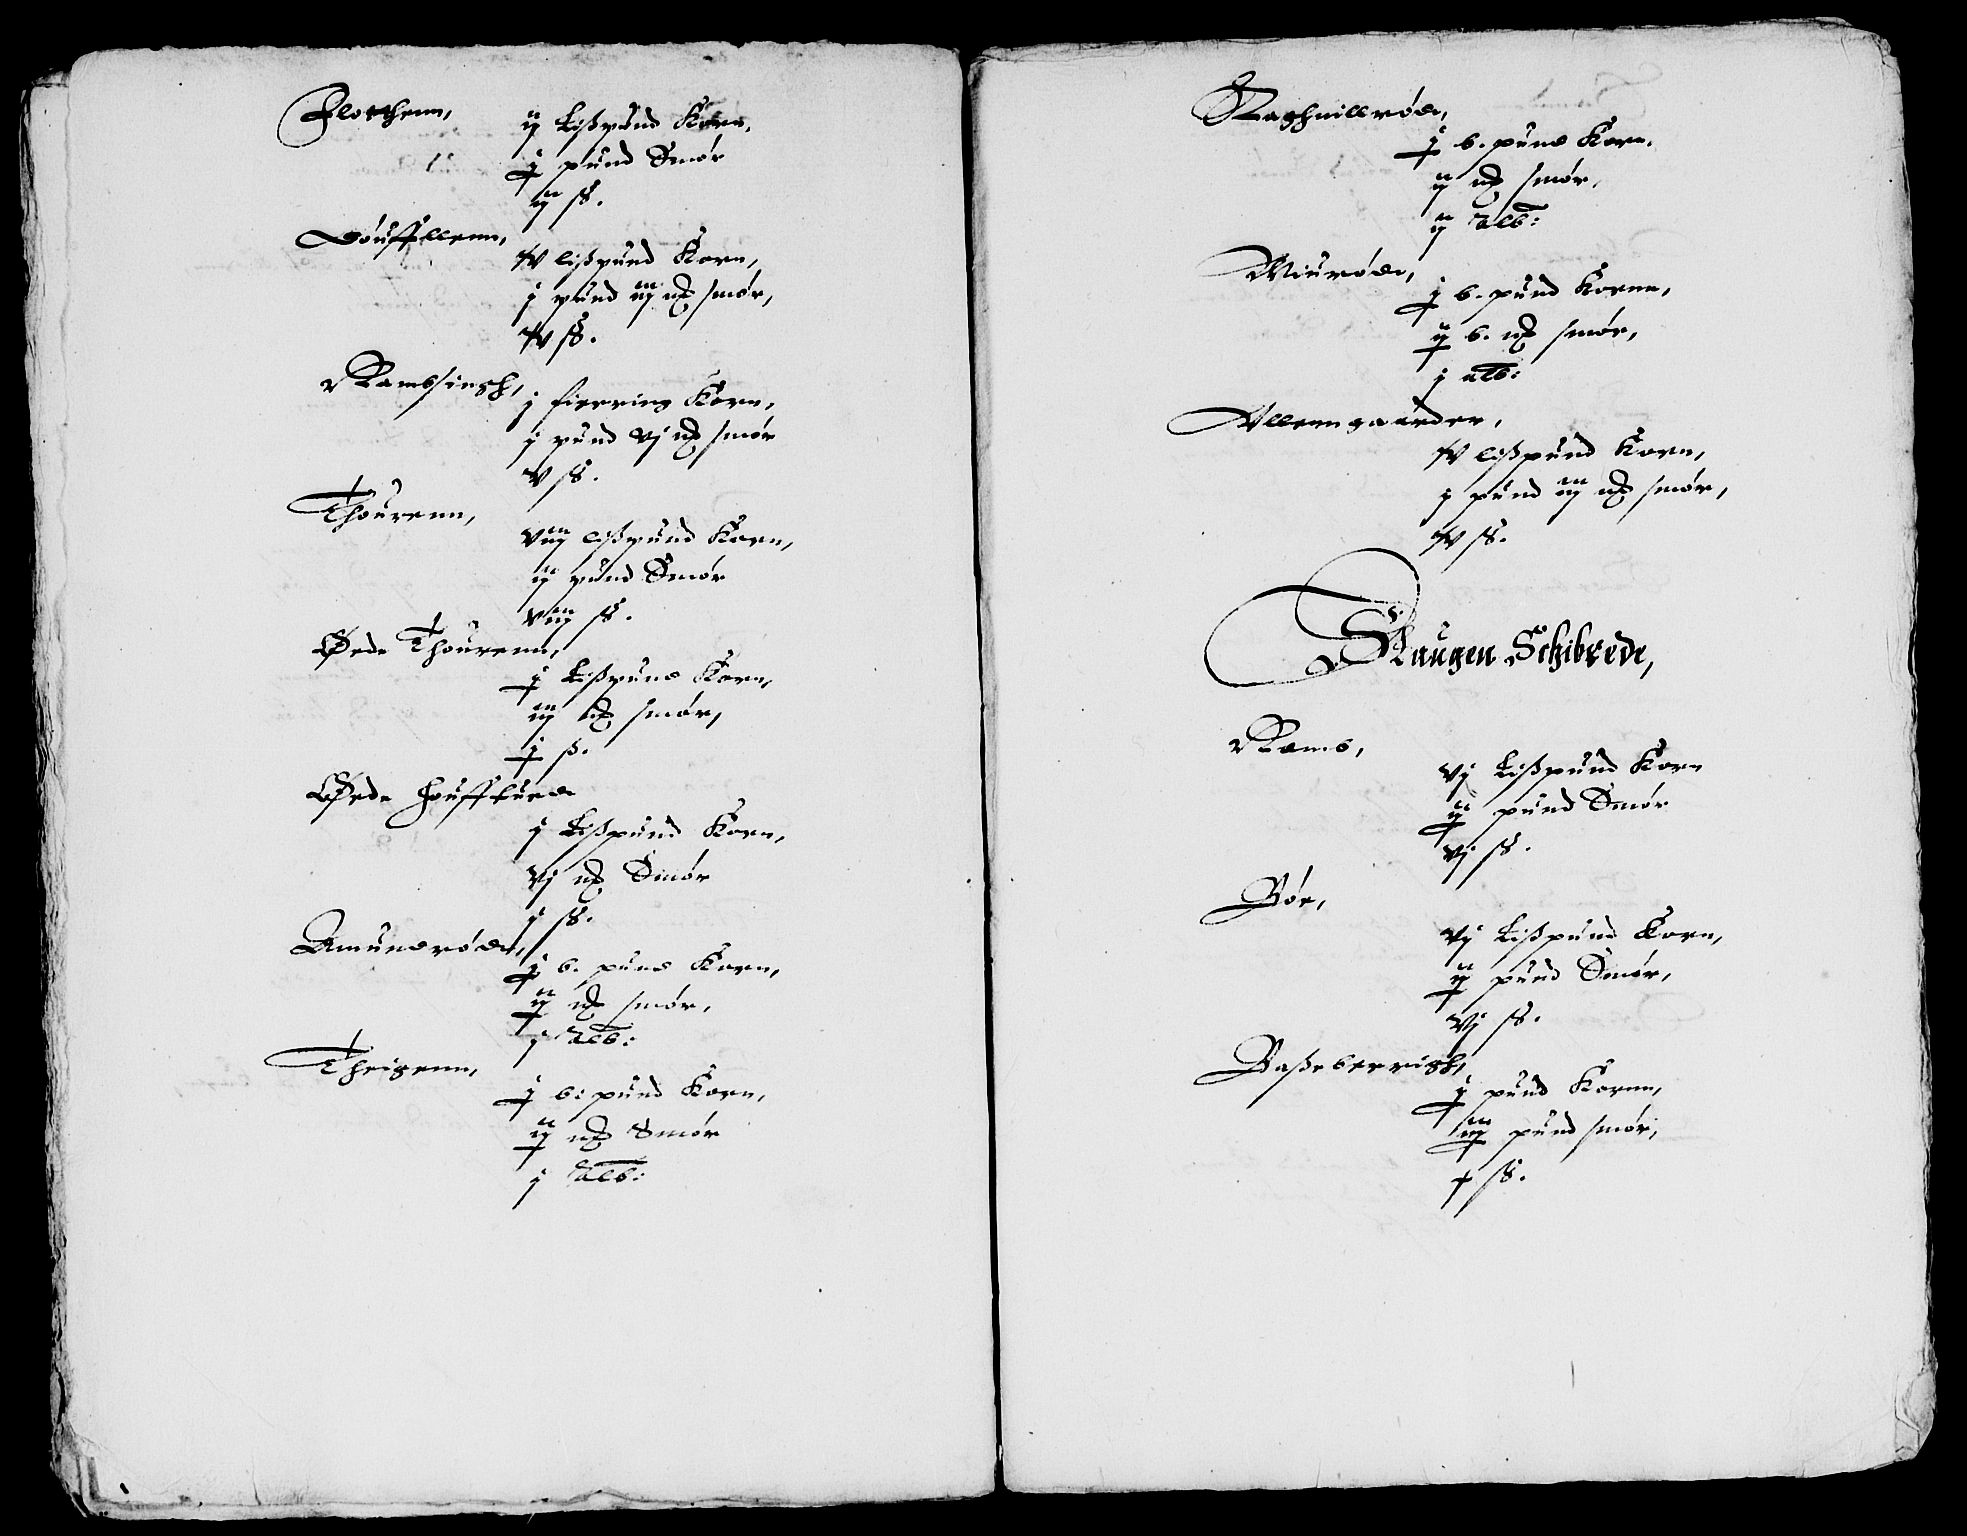 Flotthenn,
ij Lißpund Korn,
j pund Smør
ij ß.
Göufflleenn,
iv lißpund Korn,
j pund iiij mk smør,
iv ß.
Rambsingh,
j fierring Korn,
j pund vj mk smør
v ß.
Thourenn,
viij lißpund Korn,
ij pund Smør
viij ß.
Øede Thourenn,
j Lißpund Korn,
iij mk smør,
j ß.
Øede Houfftued
j Lißpund Korn,
vj mk Smør
j ß.
Amundrøde,
j b. pund Korn,
ij mk smør,
j alb:
Thrigenn,
j b: pund Korn,
ij mk Smør
j alb:
Raghnillrøde,
j b. pund Korn,
ij mk smør,
ij alb:
Miurøde,
j b. pund Kornn,
ij b. mk smør,
j alb:
Alleenngaarder,
iv lißpund Korn,
j pund iiij mk smør,
iv ß.
Skaugen Schibrede,
Ramb,
vj Lißpund Korn
ij pund Smør
vj ß.
Bør,
vj Lißpund Korn,
ij pund Smør,
vj ß.
Baßeberrigh,
j pund Kornn,
iiij pund smør,
x ß.